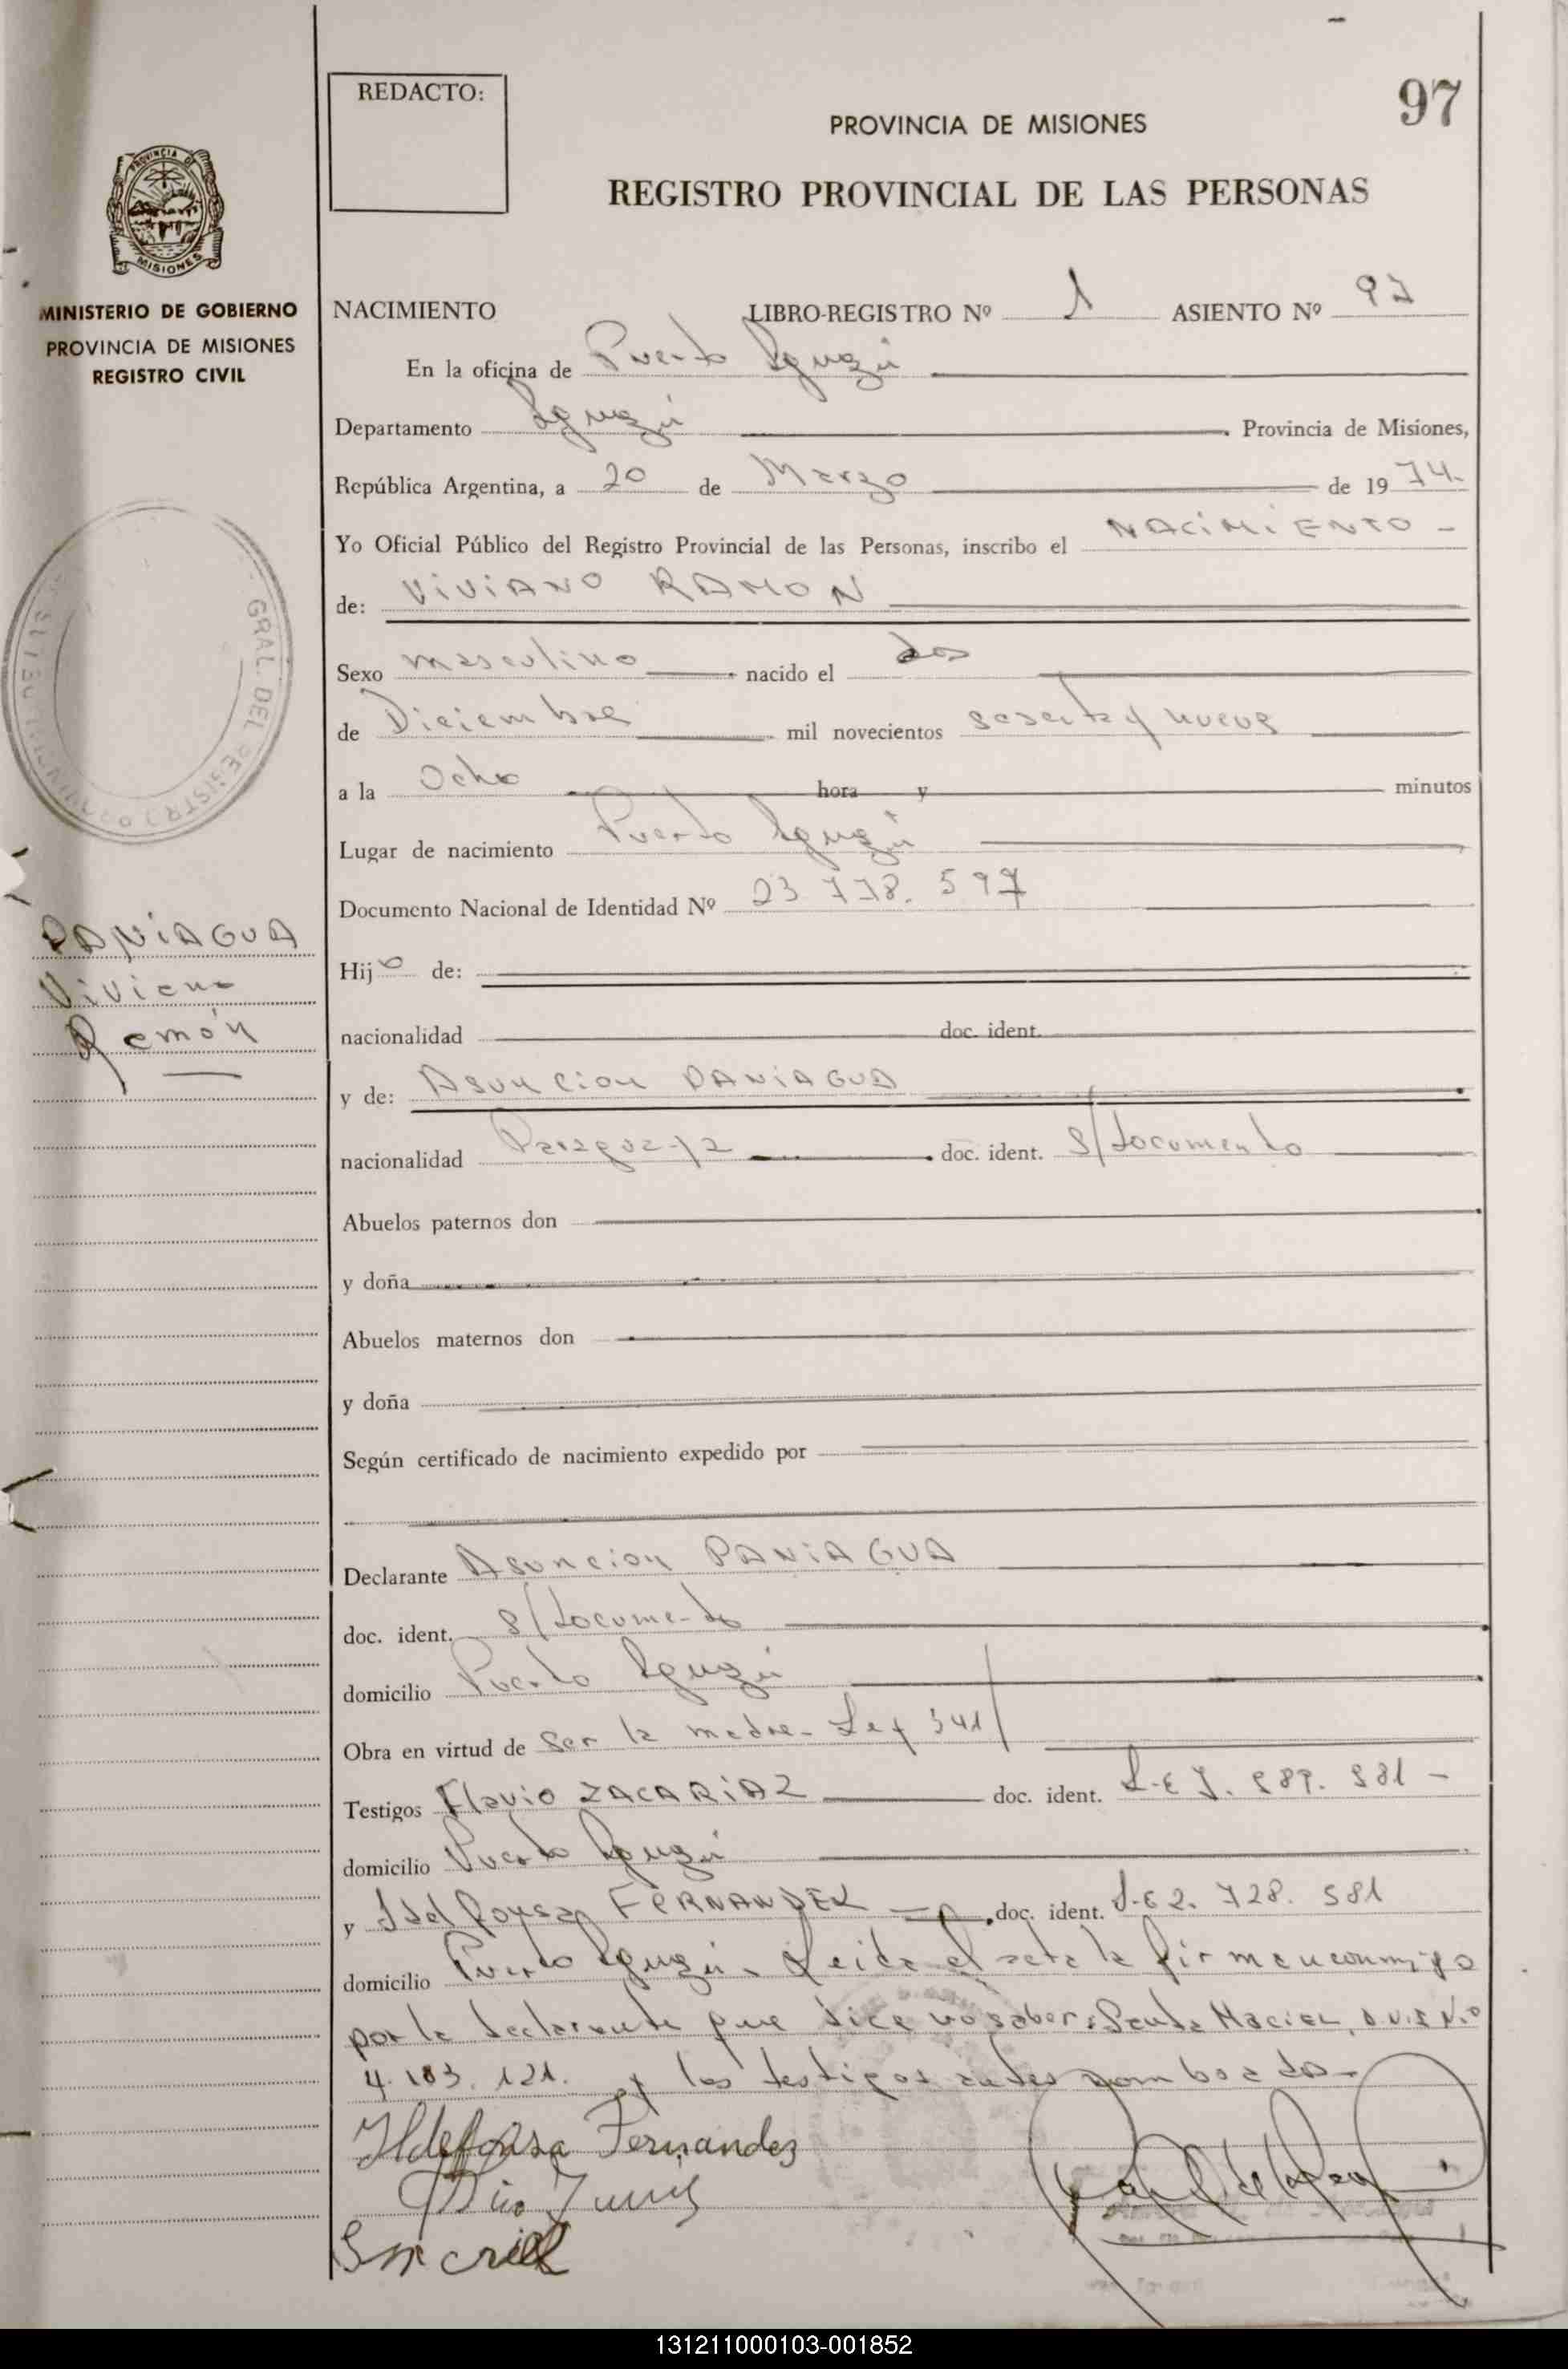 97
REDACTO:
PROVINCIA DE MISIONES
REGISTRO PROVINCIAL DE LAS PERSONAS
PROVINCIA DE
MISIONES
MINISTERIO DE GOBIERNO
PROVINCIA DE MISIONES
REGISTRO CIVIL
NACIMIENTO LIBRO-REGISTRO Nº 1 ASIENTO Nº 97
En la oficina de Puerto Iguazú
Departamento Iguazú Provincia de Misiones,
República Argentina, a 20 de Marzo de 1974.
Yo Oficial Público del Registro Provincial de las Personas, inscribo el NACIMIENTO -
de: VIVIANO RAMON
Sexo masculino nacido el dos
de Diciembre mil novecientos sesenta y nueve
a la Ocho hora y minutos
Lugar de nacimiento Puerto Iguazú
Documento Nacional de Identidad Nº 23 778. 597
GRAL. DEL REGISTRO
PANIAGUA
Viviano
Ramón
Hijo de:
nacionalidad doc. ident.
y de: Asuncion PANIAGUA
nacionalidad Paraguaya doc. ident. S/documento
Abuelos paternos don
y doña
Abuelos maternos don
y doña
Según certificado de nacimiento expedido por
Declarante Asuncion PANIAGUA
doc. ident. S/documento
domicilio Puerto Iguazú
Obra en virtud de Ser la madre - Ley
Testigos Flavio ZACARIAZ doc. ident. L.E 7.
domicilio Puerto Iguazú
y FERNANDEZ doc. ident. 2. 728. 581
domicilio Puerto Iguazú. Leida el acta la firman conmigo
por la declarante que dice no saber: Maciel, D.N.I Nº
4. 103. 121. y los testigos antes nombrados -
Ildefonsa Fernandez
131211000103-001852